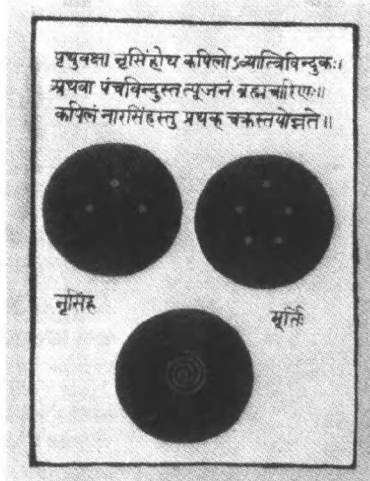 पृथुवक्षा नृसिंहोथ कपिलोऽव्यात्त्रिविन्दुकः।
अथवा पंचविन्दुस्तत्पूजनं ब्रह्मचारिणः॥
कपिलं नारसिंहस्तु प्रथक चक्रस्तयोन्नते॥
नृसिंह
मूर्तिः